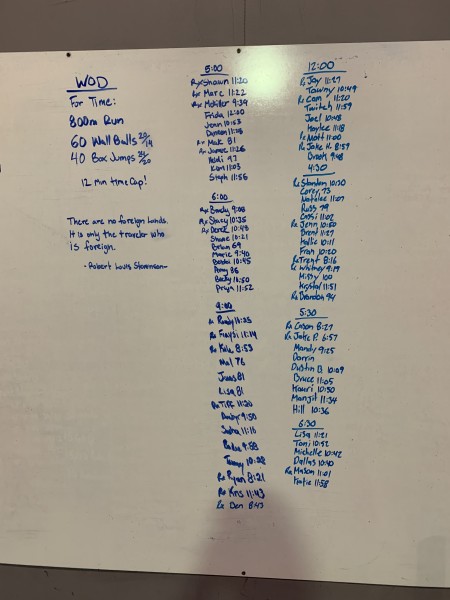 WOD
For Time:
800m Run
60 Wall Balls 20/14
40 Box Jumps 24/20
12 Min Time Cap!
There are no foreign lands.
It is only the traveler who
is foreign.
-Robert Louis Stevenson-
5:00
Rx Shawn 11:20
Rx Marc 11:22
Rx McKiller 9:39
Frida 12:00
Jenn 10:53
11:08
Rx Mak 81
Rx Jamee 11:26
Heidi 97
Kam 11:03
Steph 11:56
6:00
Rx Brady 9:08
Rx Stacy 10:35
Rx Derek 10:48
Shane 10:21
Brian 69
Marie 9:40
Bobbi 10:45
Penny 86
Becky 11:50
Priya 11:52
9:00
Rx Randy 11:25
Rx 11:14
Rx Kyle 8:53
Mal 76
Jonas 81
Lisa 81
Rx Tiff 11:20
Andy 9:50
Sasha 11:11
9:58
Tammy 10:28
Rx Ryan 8:21
Rx Kris 11:43
Rx Dan 8:43
12:00
Rx Jay 11:27
Tawny 10:49
Rx Cam 11:20
Twitch 11:59
Joel 10:48
Haylee 11:18
Rx Matt 11:00
Rx Jake H. 8:59
Brook 9:48
4:30
Rx Standon 10:30
Corey 73
Natalie 11:07
Russ 79
Cassi 11:02
Rx Jenn 10:50
Brent 11:27
Hollie 10:11
Fran 10:20
Rx Trent 8:16
Rx Whitney 9:19
Missy 100
Krystal 11:51
Rx Brandon 94
5:30
Rx Cason 8:27
Rx Jake P. 6:57
Mandy 9:25
Darrin
Dustin B 10:09
Bruce 11:05
Kauri 10:50
Manjit 11:34
Hill 10:36
6:30
Lisa 11:21
Toni 10:52
Michelle 10:42
Dallas 10:40
Rx Mason 11:01
Katie 11:58